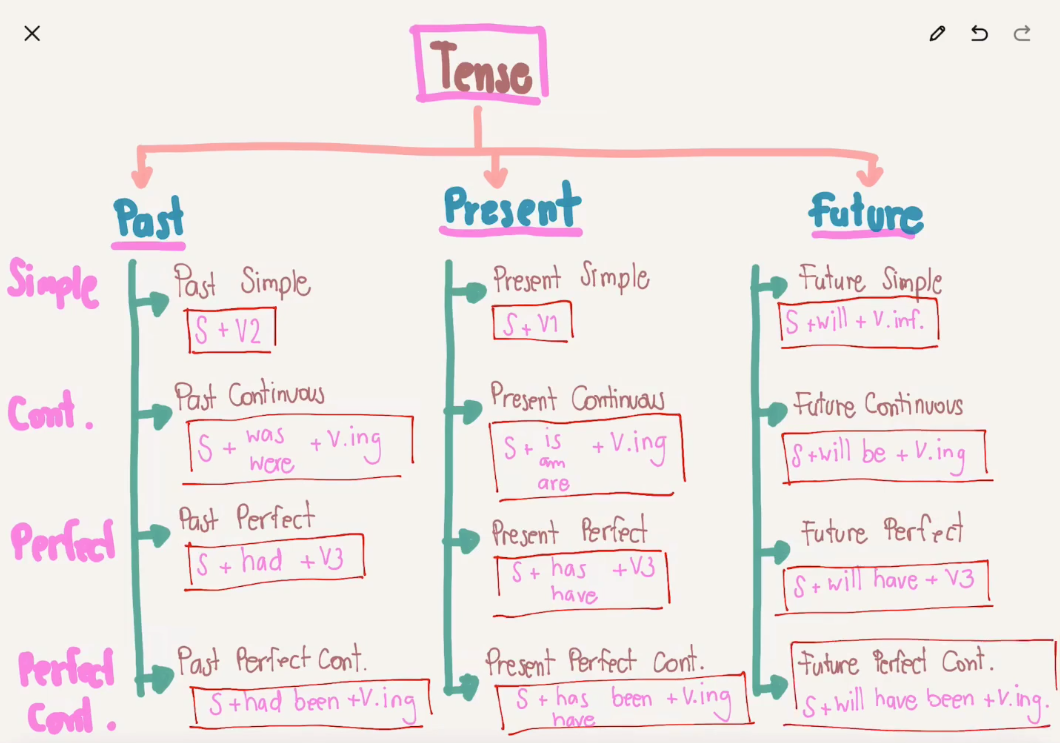 Tense
Past Present Future
Simple
Past Simple
S + V2
Present Simple
S + V1
Future Simple
S + will + V.inf.
Cont.
Past Continuous
S + was + V.ing
were
Present Continuous
S + is + V.ing
am
are
Future Continuous
S + will be + V.ing
Perfect
Past Perfect
S + had + V3
Present Perfect
S + has + V3
have
Future Perfect
S + will have + V3
Perfect
Cont.
Past Perfect Cont.
S + had been + V.ing
Present Perfect Cont.
S + has been + V.ing
have
Future Perfect Cont.
S + will have been + V.ing.